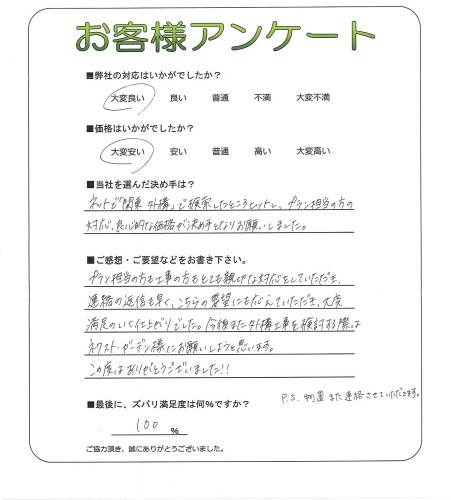 お客様アンケート
■弊社の対応はいかがでしたか？
大変良い　良い　普通　不満　大変不満
■価格はいかがでしたか？
大変安い　安い　普通　高い　大変高い
■当社を選んだ決め手は？
ネットで「関東 外構」で検索したところヒットし、プラン担当の方の
対応、良心的な価格が決め手となりお願いしました。
■ご感想・ご要望などをお書き下さい。
プラン担当の方も工事の方もとても親切な対応をしていただき、
連絡の返信も早く、こちらの要望にも応えていただき、大変
満足のいく仕上がりでした。今後また外構工事を検討する際は
ネクスト・ガーデン様にお願いしようと思います。
この度はありがとうございました!!
P.S. 物置また連絡させていただきます。
■最後に、ズバリ満足度は何％ですか？
100 ％
ご協力頂き、誠にありがとうございました。